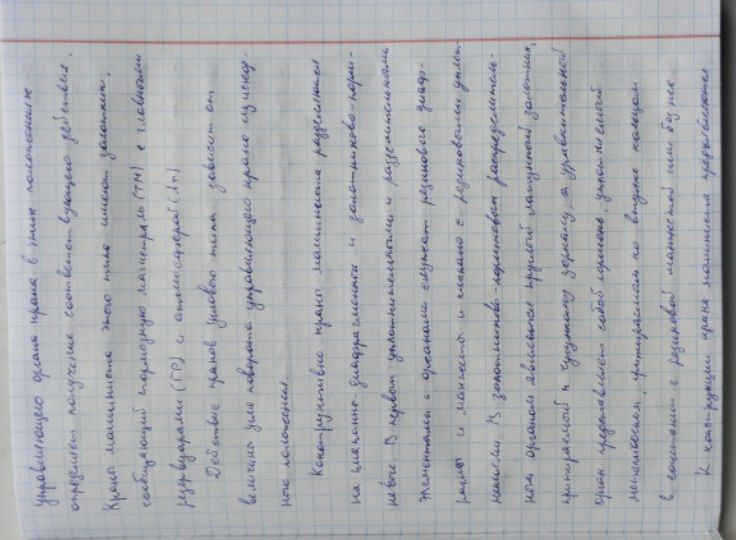 управляющего органа крана в этих положениях
определяет получение соответствующего действия.
Краны машиниста этого типа имеют золотник,
сообщающий тормозную магистраль (ТМ) с главными
резервуарами (ГР) и атмосферой (Ат)
Действие кранов углового типа зависит от
величины угла поворота управляющего крана из исход-
ного положения.
Конструктивно краны машиниста разделяются
на клапанно-диафрагменные и золотниково-порш-
невые. В первых уплотнительными и разделительными
элементами и органами служат резиновые диаф-
рагмы и манжеты и клапана с резиновыми уплот-
нениями. В золотниково-поршневых распределитель-
ным органом является круглый латунный золотник,
притираемый к чугунному зеркалу, а уравнительный
орган представляет собой поршень, уплотняемый
металлическим, притираемым по втулке кольцом
в сочетании с резиновой манжетой или без нее.
К конструкции крана машиниста предъявляются